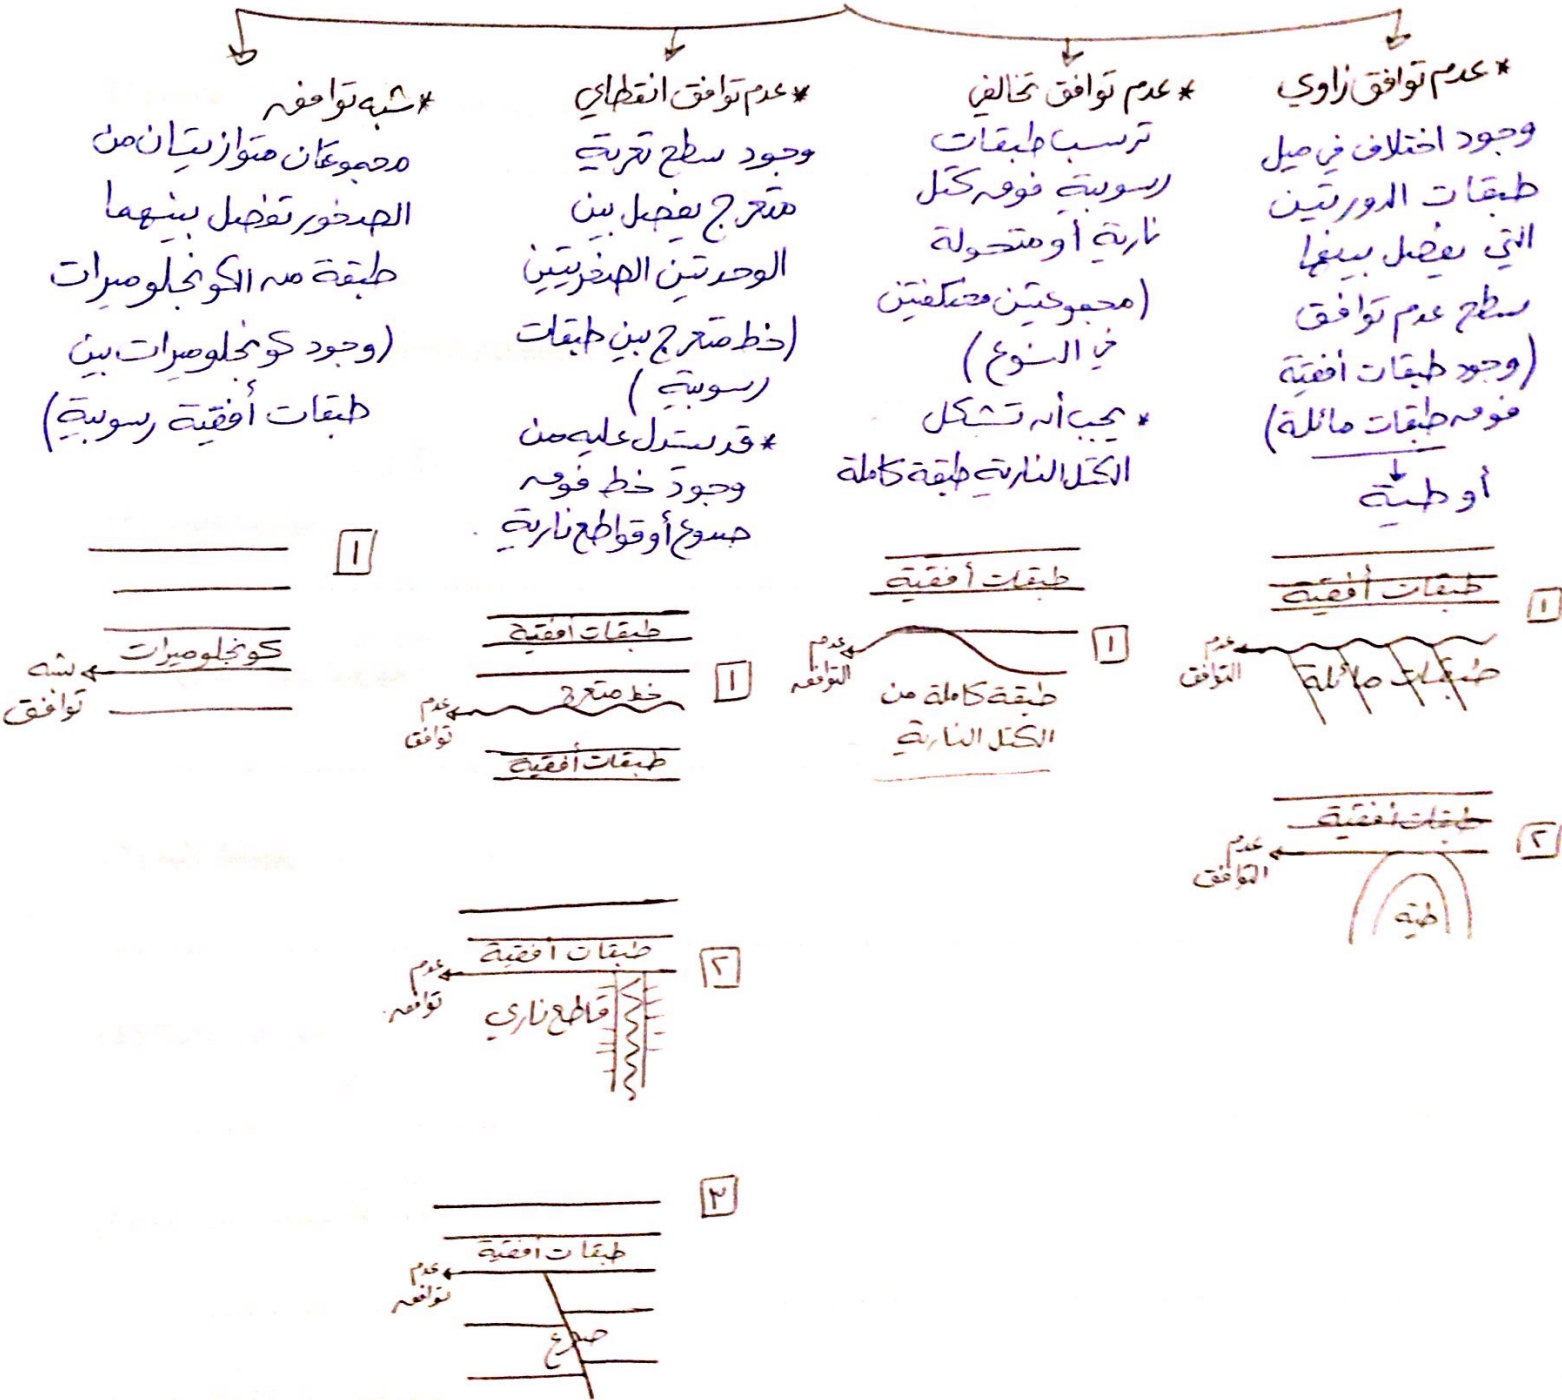 * عدم توافق زاوي
وجود اختلاف في ميل
طبقات الدورتين
التي يفصل بينها
سطح عدم توافق
(وجود طبقات أفقية
فوق طبقات مائلة)
أو طية
١
طبقات أفقية
عدم
التوافق
طبقات مائلة
٢
طبقات أفقية
عدم
التوافق
طية
* عدم توافق تخالفي
ترسب طبقات
رسوبية فوق كتل
نارية أو متحولة
(مجموعتين مختلفتين
في النوع)
* يجب أن تشكل
الكتل النارية طبقة كاملة
طبقات أفقية
١
عدم
التوافق
طبقة كاملة من
الكتل النارية
* عدم توافق انقطاعي
وجود سطح تعرية
متعرج يفصل بين
الوحدتين الصخريتين
(خط متعرج بين طبقات
رسوبية)
* قد يستدل عليه من
وجود خط فوق
صدوع أو قواطع نارية
طبقات أفقية
١
خط متعرج
عدم
توافق
طبقات أفقية
٢
طبقات أفقية
عدم
توافق
قاطع ناري
٣
طبقات أفقية
عدم
توافق
صدع
* شبه توافق
مجموعتان متوازيتان من
الصخور تفصل بينهما
طبقة من الكونجلوميرات
(وجود كونجلوميرات بين
طبقات أفقية رسوبية)
١
كونجلوميرات
شبه
توافق